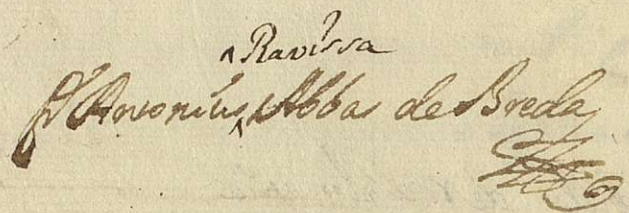 ^Ravissa
Fr Antonius ^ Abbas de Breda